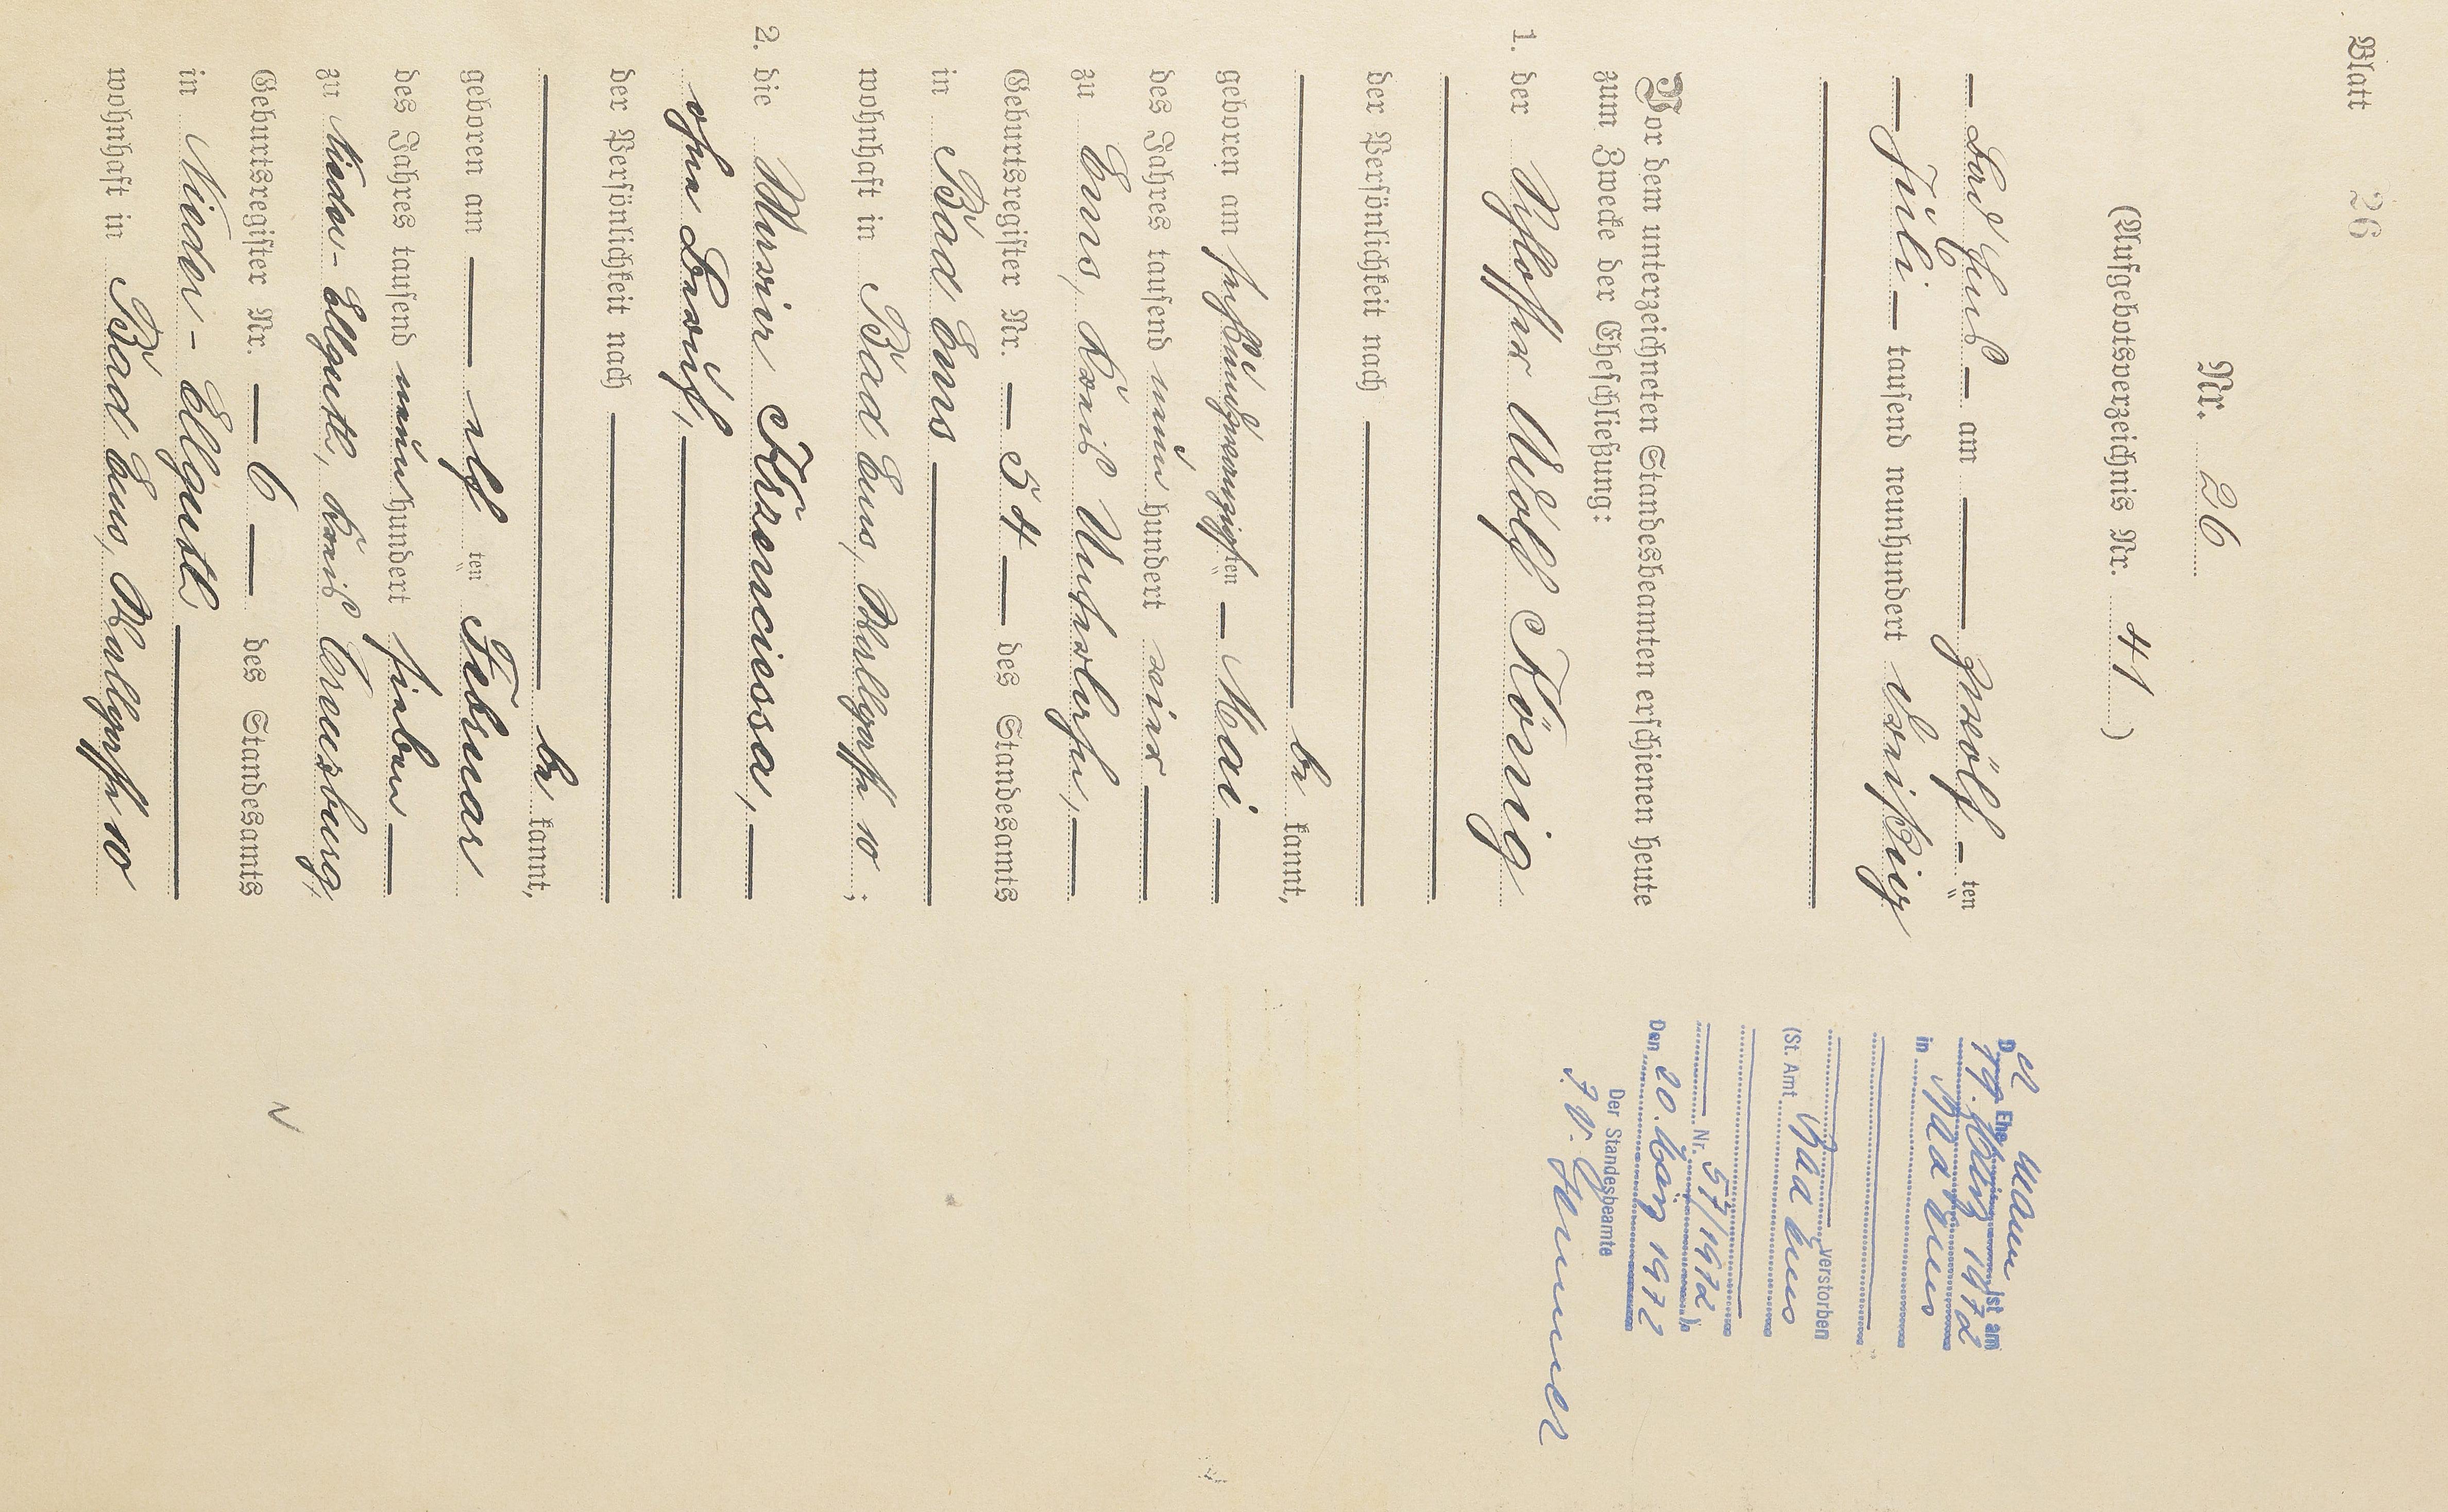 Blatt 26
Nr. 26
(Aufgebotsverzeichnis Nr. 41)
— Bad Ems — am — zwölf — ten
— Juli — tausend neunhundert dreißig
Vor dem unterzeichneten Standesbeamten erschienen heute
zum Zwecke der Eheschließung:
1. der Schlosser Adolf König
der Persönlichkeit nach
be kannt,
geboren am fünfundzwanzigsten — Mai —
des Jahres tausend neun hundert vier —
zu Ems, Kreis Unterlahn, —
Geburtsregister Nr. — 54 — des Standesamts
in Bad Ems
wohnhaft in Bad Ems, Wallgasse 10 ;
2. die Maria Krzenciessa, —
ohne Beruf, —
der Persönlichkeit nach
be kannt,
geboren am — elf ten Februar
des Jahres tausend neun hundert sieben —
zu Nieder-Ellguth, Kreis Creuzburg,
Geburtsregister Nr. — 6 — des Standesamts
in Nieder-Ellguth
wohnhaft in Bad Ems, Wallgasse 10
Der Ehemann ist am
19. März 1972
in Bad Ems
verstorben
(St. Amt Bad Ems
Nr. 57/1972)
Den 20. März 1972
Der Standesbeamte
I. V.